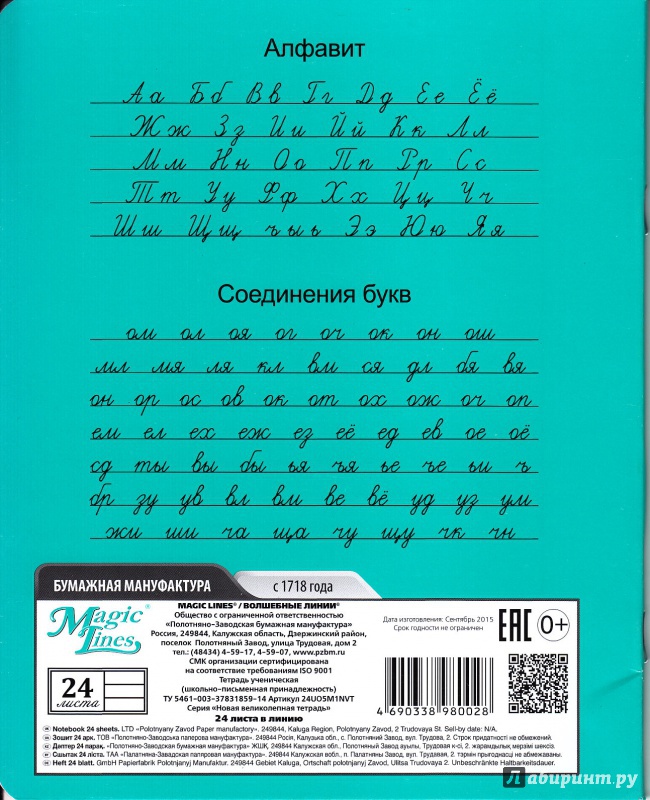 Алфавит
Аа Бб Вв Гг Дд Ее Ёё
Жж Зз Ии Йй Кк Лл
Мм Нн Оо Пп Рр Сс
Тт Уу Фф Хх Цц Чч
Шш Щщ ъыь Ээ Юю Яя
Соединения букв
ом ол оя ог оч ок он ош
мл мя ля кл вм ся дл бя вя
он ор ос ов ок от ох ож оч оп
ем ел ех еж ез её ед ев ое оё
сд ты вы бы ья ъя ье ъе ьи ъ
бр зу ув вл вм ве вё уд уз ум
жи ши ча ща чу щу чк чн
БУМАЖНАЯ МАНУФАКТУРА
с 1718 года
Magic Lines®
24 листа
MAGIC LINES® / ВОЛШЕБНЫЕ ЛИНИИ®
Общество с ограниченной ответственностью
«Полотняно–Заводская бумажная мануфактура»
Россия, 249844, Калужская область, Дзержинский район,
поселок Полотняный Завод, улица Трудовая, дом 2
тел.: (48434) 4–59–17, 4–59–07, www.pzbm.ru
СМК организации сертифицирована
на соответствие требованиям ISO 9001
Тетрадь ученическая
(школьно–письменная принадлежность)
ТУ 5461–003–37831859–14 Артикул 24UO5M1NVT
Серия «Новая великолепная тетрадь»
24 листа в линию
Дата изготовления: Сентябрь 2015
Срок годности не ограничен
EAC
0+
4 690338 980028
Notebook 24 sheets. LTD «Polotnyany Zavod Paper manufactory». 249844, Kaluga Region, Polotnyany Zavod, 2 Trudovaya St. Sell-by date: N/A.
Зошит 24 арк. ТОВ «Полотняно-Заводська паперова мануфактура». 249844 Росія, Калузька обл., с. Полотняний Завод, вул. Трудова, 2. Строк придатності не обмежений.
Даптер 24 парақ. «Полотняно-Заводская бумажная мануфактура» ЖШҚ, 249844 Калужская обл., Полотняный Завод ауылы, Трудовая к-сі, 2. жарамдылық мерзімі шексіз.
Сшытак 24 ліста. ТАА «Палатняна-Заводская папяровая мануфактура». 249844 Калужская вобл., п. Палатняны Завод, вул. Трудовая, 2. тэрмін прыгоднасці не абмежаваны.
Heft 24 blatt. GmbH Papierfabrik Polotnjanyj Manufaktur. 249844 Gebiet Kaluga, Ortschaft polotnjanyj Zavod, Ulitsa Trudowaja 2. Unbeschränkte Haltbarkeitsdauer.
Лабиринт.ру